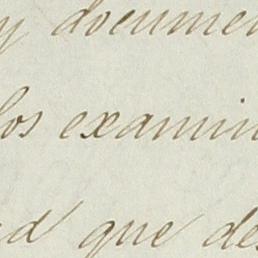 y documen
los examin
ad que des